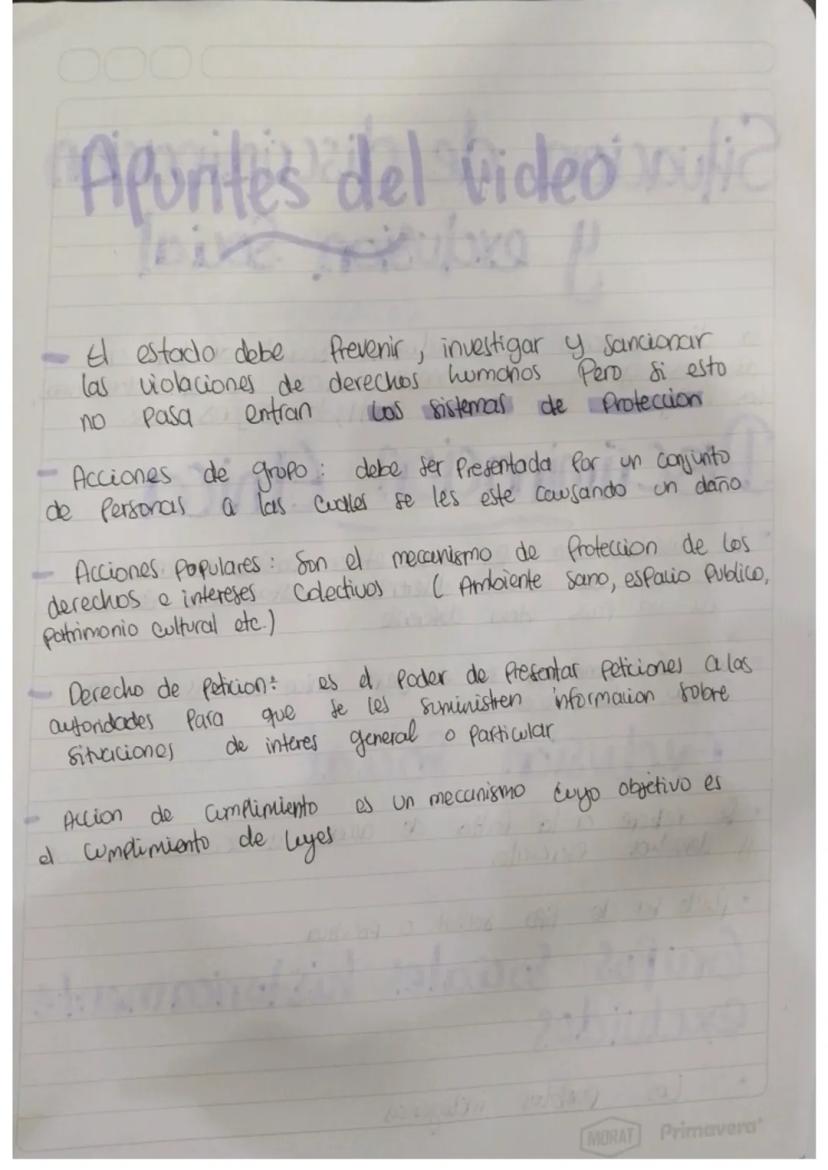 Apuntes del video
- El estado debe Prevenir, investigar y sancionar
las violaciones de derechos humanos Pero si esto
no Pasa entran Los sistemas de Proteccion
- Acciones de grupo: debe ser Presentada Por un conjunto
de Personas a las cuales se les este causando un daño
- Acciones Populares: Son el mecanismo de Proteccion de los
derechos e intereses Colectivos ( Ambiente Sano, espacio Publico,
Patrimonio Cultural etc.)
- Derecho de Peticion: es el Poder de Presentar Peticiones a las
autoridades Para que se les suministren informacion sobre
situaciones de interes general o Particular
- Accion de cumplimiento es un mecanismo cuyo objetivo es
el cumplimiento de leyes
MORAT Primavera